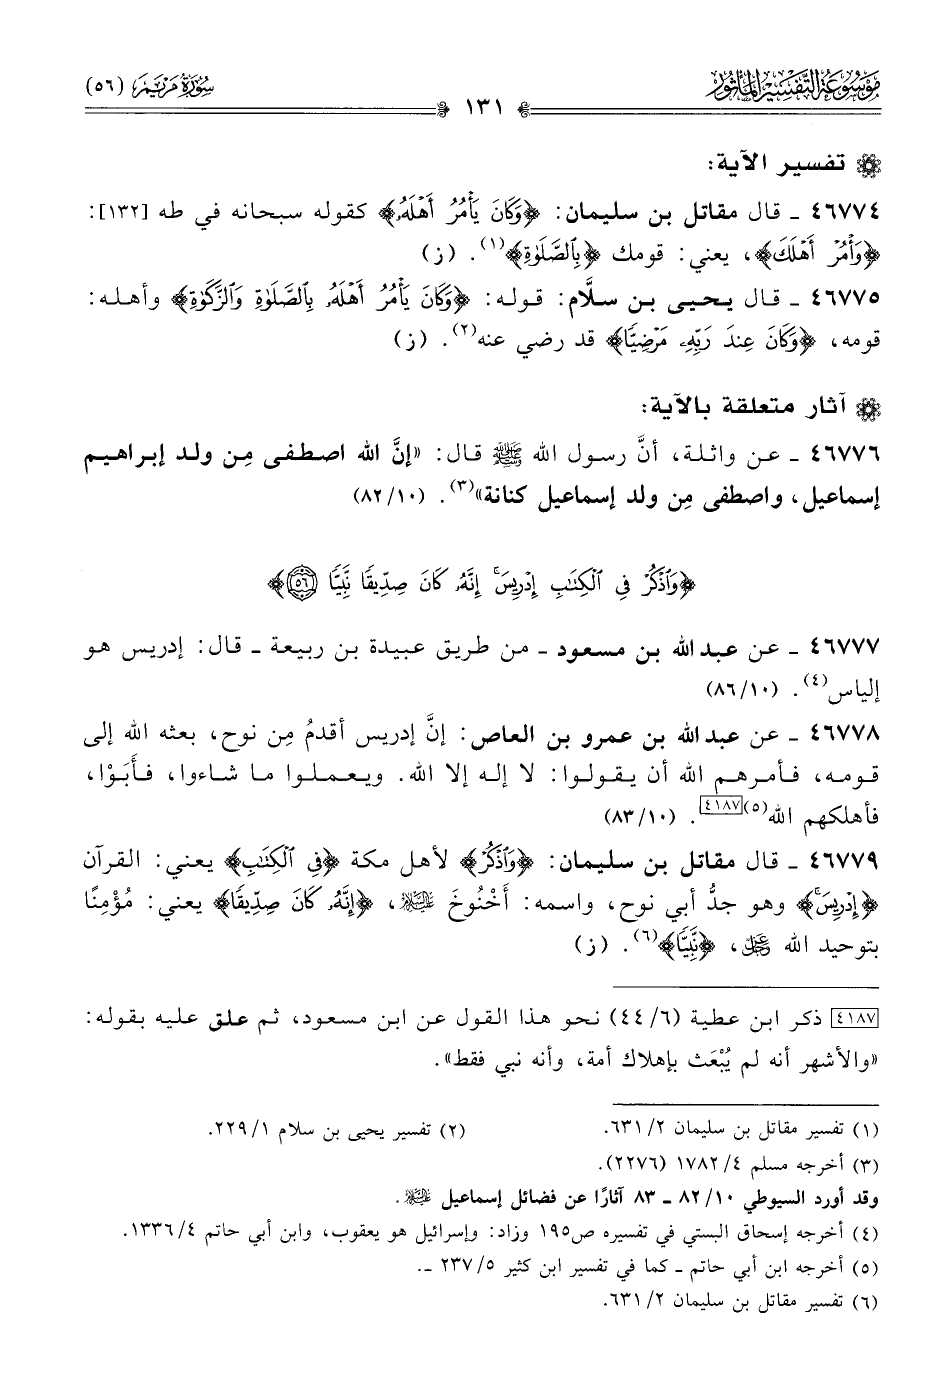 مَوْسُوعَةُ التَّفْسِيرِ المَأْثُورِ
سُورَةُ مَرْيَمَ (٥٦)
١٣١
تفسير الآية:
٤٦٧٧٤ ـ قال مقاتل بن سليمان: ﴿وَكَانَ يَأْمُرُ أَهْلَهُۥ﴾ كقوله سبحانه في طه [١٣٢]:
﴿وَأْمُرْ أَهْلَكَ﴾، يعني: قومك ﴿بِٱلصَّلَوٰةِ﴾(١). (ز)
٤٦٧٧٥ ـ قال يحيى بن سلَّام: قوله: ﴿وَكَانَ يَأْمُرُ أَهْلَهُۥ بِٱلصَّلَوٰةِ وَٱلزَّكَوٰةِ﴾ وأهله:
قومه، ﴿وَكَانَ عِندَ رَبِّهِۦ مَرْضِيًّا﴾ قد رضي عنه(٢). (ز)
آثار متعلقة بالآية:
٤٦٧٧٦ ـ عن واثلة، أنَّ رسول الله ﷺ قال: «إنَّ الله اصطفى مِن ولد إبراهيم
إسماعيل، واصطفى مِن ولد إسماعيل كنانة»(٣). (١٠/ ٨٢)
﴿وَٱذْكُرْ فِى ٱلْكِتَٰبِ إِدْرِيسَ ۚ إِنَّهُۥ كَانَ صِدِّيقًا نَّبِيًّا ٥٦﴾
٤٦٧٧٧ ـ عن عبد الله بن مسعود ـ من طريق عبيدة بن ربيعة ـ قال: إدريس هو
إلياس(٤). (١٠/ ٨٦)
٤٦٧٧٨ ـ عن عبد الله بن عمرو بن العاص: إنَّ إدريس أقدمُ مِن نوح، بعثه الله إلى
قومه، فأمرهم الله أن يقولوا: لا إله إلا الله. ويعملوا ما شاءوا، فأَبَوْا،
فأهلكهم الله(٥)[٤١٨٧]. (١٠/ ٨٣)
٤٦٧٧٩ ـ قال مقاتل بن سليمان: ﴿وَٱذْكُرْ﴾ لأهل مكة ﴿فِى ٱلْكِتَٰبِ﴾ يعني: القرآن
﴿إِدْرِيسَ ۚ﴾ وهو جدُّ أبي نوح، واسمه: أَخْنُوخَ ﵇، ﴿إِنَّهُۥ كَانَ صِدِّيقًا﴾ يعني: مُؤْمِنًا
بتوحيد الله ﷿، ﴿نَّبِيًّا﴾(٦). (ز)
[٤١٨٧] ذكر ابن عطية (٦/ ٤٤) نحو هذا القول عن ابن مسعود، ثم علق عليه بقوله:
«والأشهر أنه لم يُبْعَث بإهلاك أمة، وأنه نبي فقط».
(١) تفسير مقاتل بن سليمان ٢/ ٦٣١.
(٢) تفسير يحيى بن سلام ١/ ٢٢٩.
(٣) أخرجه مسلم ٤/ ١٧٨٢ (٢٢٧٦).
وقد أورد السيوطي ١٠/ ٨٢ ـ ٨٣ آثارًا عن فضائل إسماعيل ﵇.
(٤) أخرجه إسحاق البستي في تفسيره ص١٩٥ وزاد: وإسرائيل هو يعقوب، وابن أبي حاتم ٤/ ١٣٣٦.
(٥) أخرجه ابن أبي حاتم ـ كما في تفسير ابن كثير ٥/ ٢٣٧ ـ.
(٦) تفسير مقاتل بن سليمان ٢/ ٦٣١.